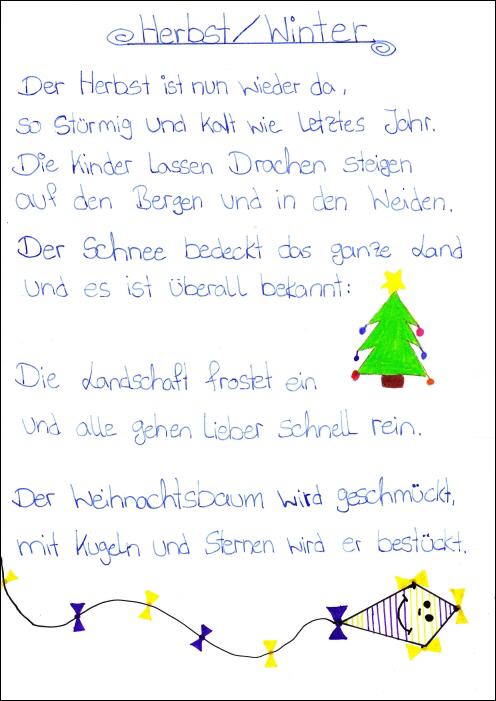 Herbst/Winter
Der Herbst ist nun wieder da,
so stürmig und kalt wie letztes Jahr.
Die Kinder lassen Drachen steigen
auf den Bergen und in den Weiden.
Der Schnee bedeckt das ganze Land
und es ist überall bekannt:
Die Landschaft frostet ein
und alle gehen lieber schnell rein.
Der Weihnachtsbaum wird geschmückt,
mit Kugeln und Sternen wird er bestückt.